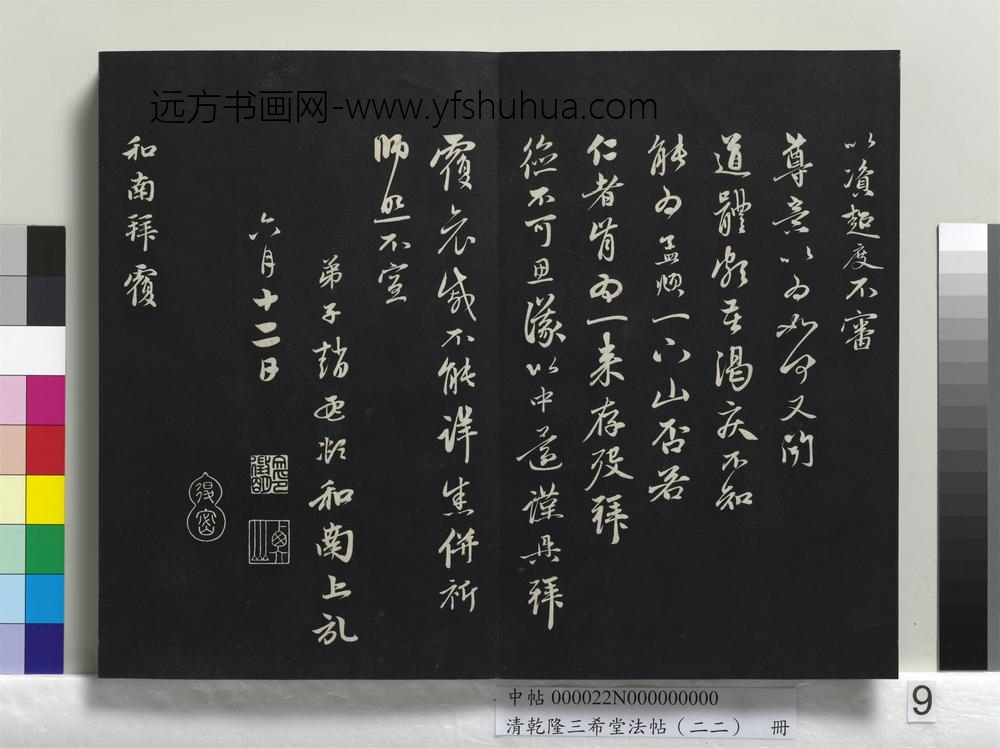 远方书画网-www.yfshuhua.com
以资超度不審
尊意以為如何又聞
道體頗苦渴疾不知
能為孟頫一下山否若
仁者肯為一来存歿拜
德不可思議以中峯謹具拜
覆哀感不能詳悉併祈
師照不宣
弟子趙孟頫和南上記
六月十二日
和南拜覆
中帖 000022N000000000
清乾隆三希堂法帖(二二) 冊
9